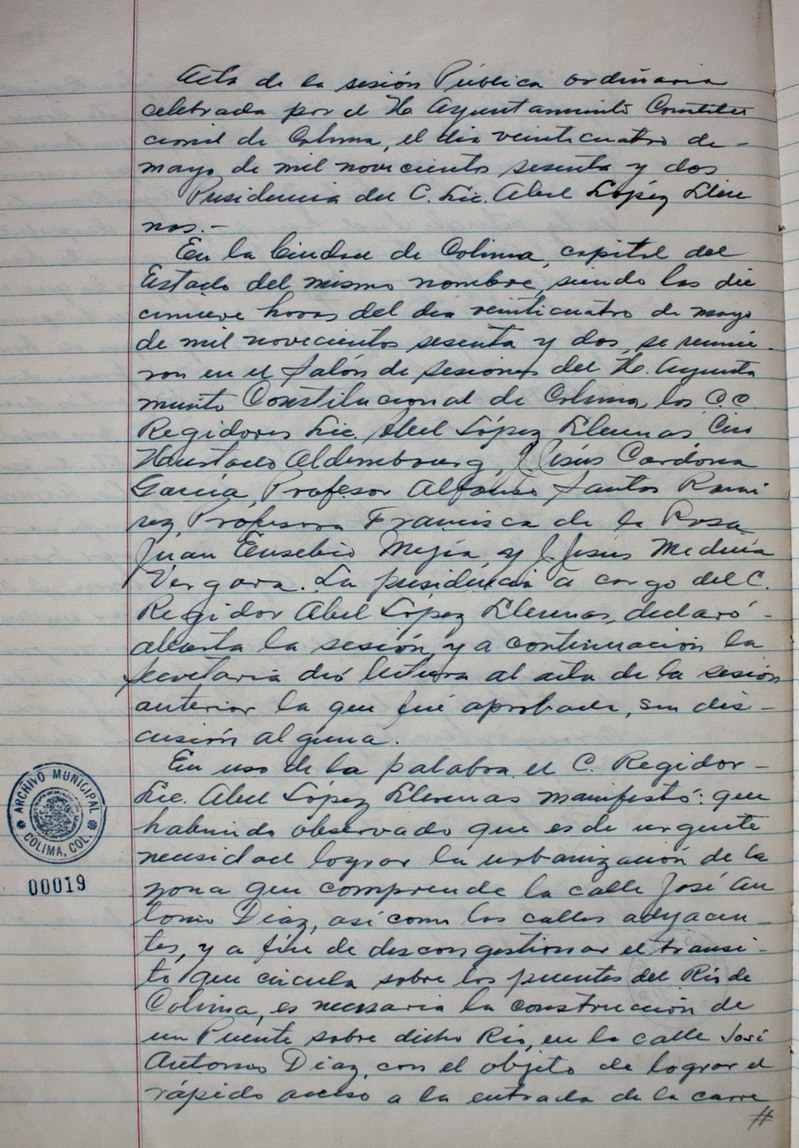 Acta de la sesión Pública ordinaria
celebrada por el H. Ayuntamiento Constitu
cional de Colima, el día veinticuatro de-
mayo de mil novecientos sesenta y dos
Presidencia del C. Lic. Abel López Llere
nas.-
En la Ciudad de Colima, capital del
Estado del mismo nombre, siendo las die
cinueve horas del día veinticuatro de mayo
de mil novecientos sesenta y dos, se reunie-
ron en el Salón de Sesiones del H. Ayunta
miento Constitucional de Colima, los C.C.
Regidores Lic. Abel López Llerenas, Ciro
Hurtado Aldembourg, J. Jesús Cardona
García, Profesor Alfonso Santos Rami
rez, Profesora Francisca de la Rosa,
Juan Eusebio Mejía y J. Jesús Medina
Vergara. La presidencia a cargo del C.
Regidor Abel López Llerenas, declaró-
abierta la sesión, y a continuación la
Secretaria dió lectura al acta de la sesión
anterior la que fué aprobada, sin dis-
cusión alguna.
En uso de la palabra el C. Regidor-
Lic. Abel López Llerenas manifestó: que
habiendo observado que es de urgente
necesidad lograr la urbanización de la
zona que comprende la calle José An
tonio Díaz, así como las calles adyacen-
tes, y a fin de descongestionar el transi-
to que circula sobre los puentes del Río de
Colima, es necesaria la construcción de
un Puente sobre dicho Río, en la calle José
Antonio Díaz, con el objeto de lograr el
rápido acceso a la entrada de la carre
//
ARCHIVO MUNICIPAL
COLIMA, COL.
00019